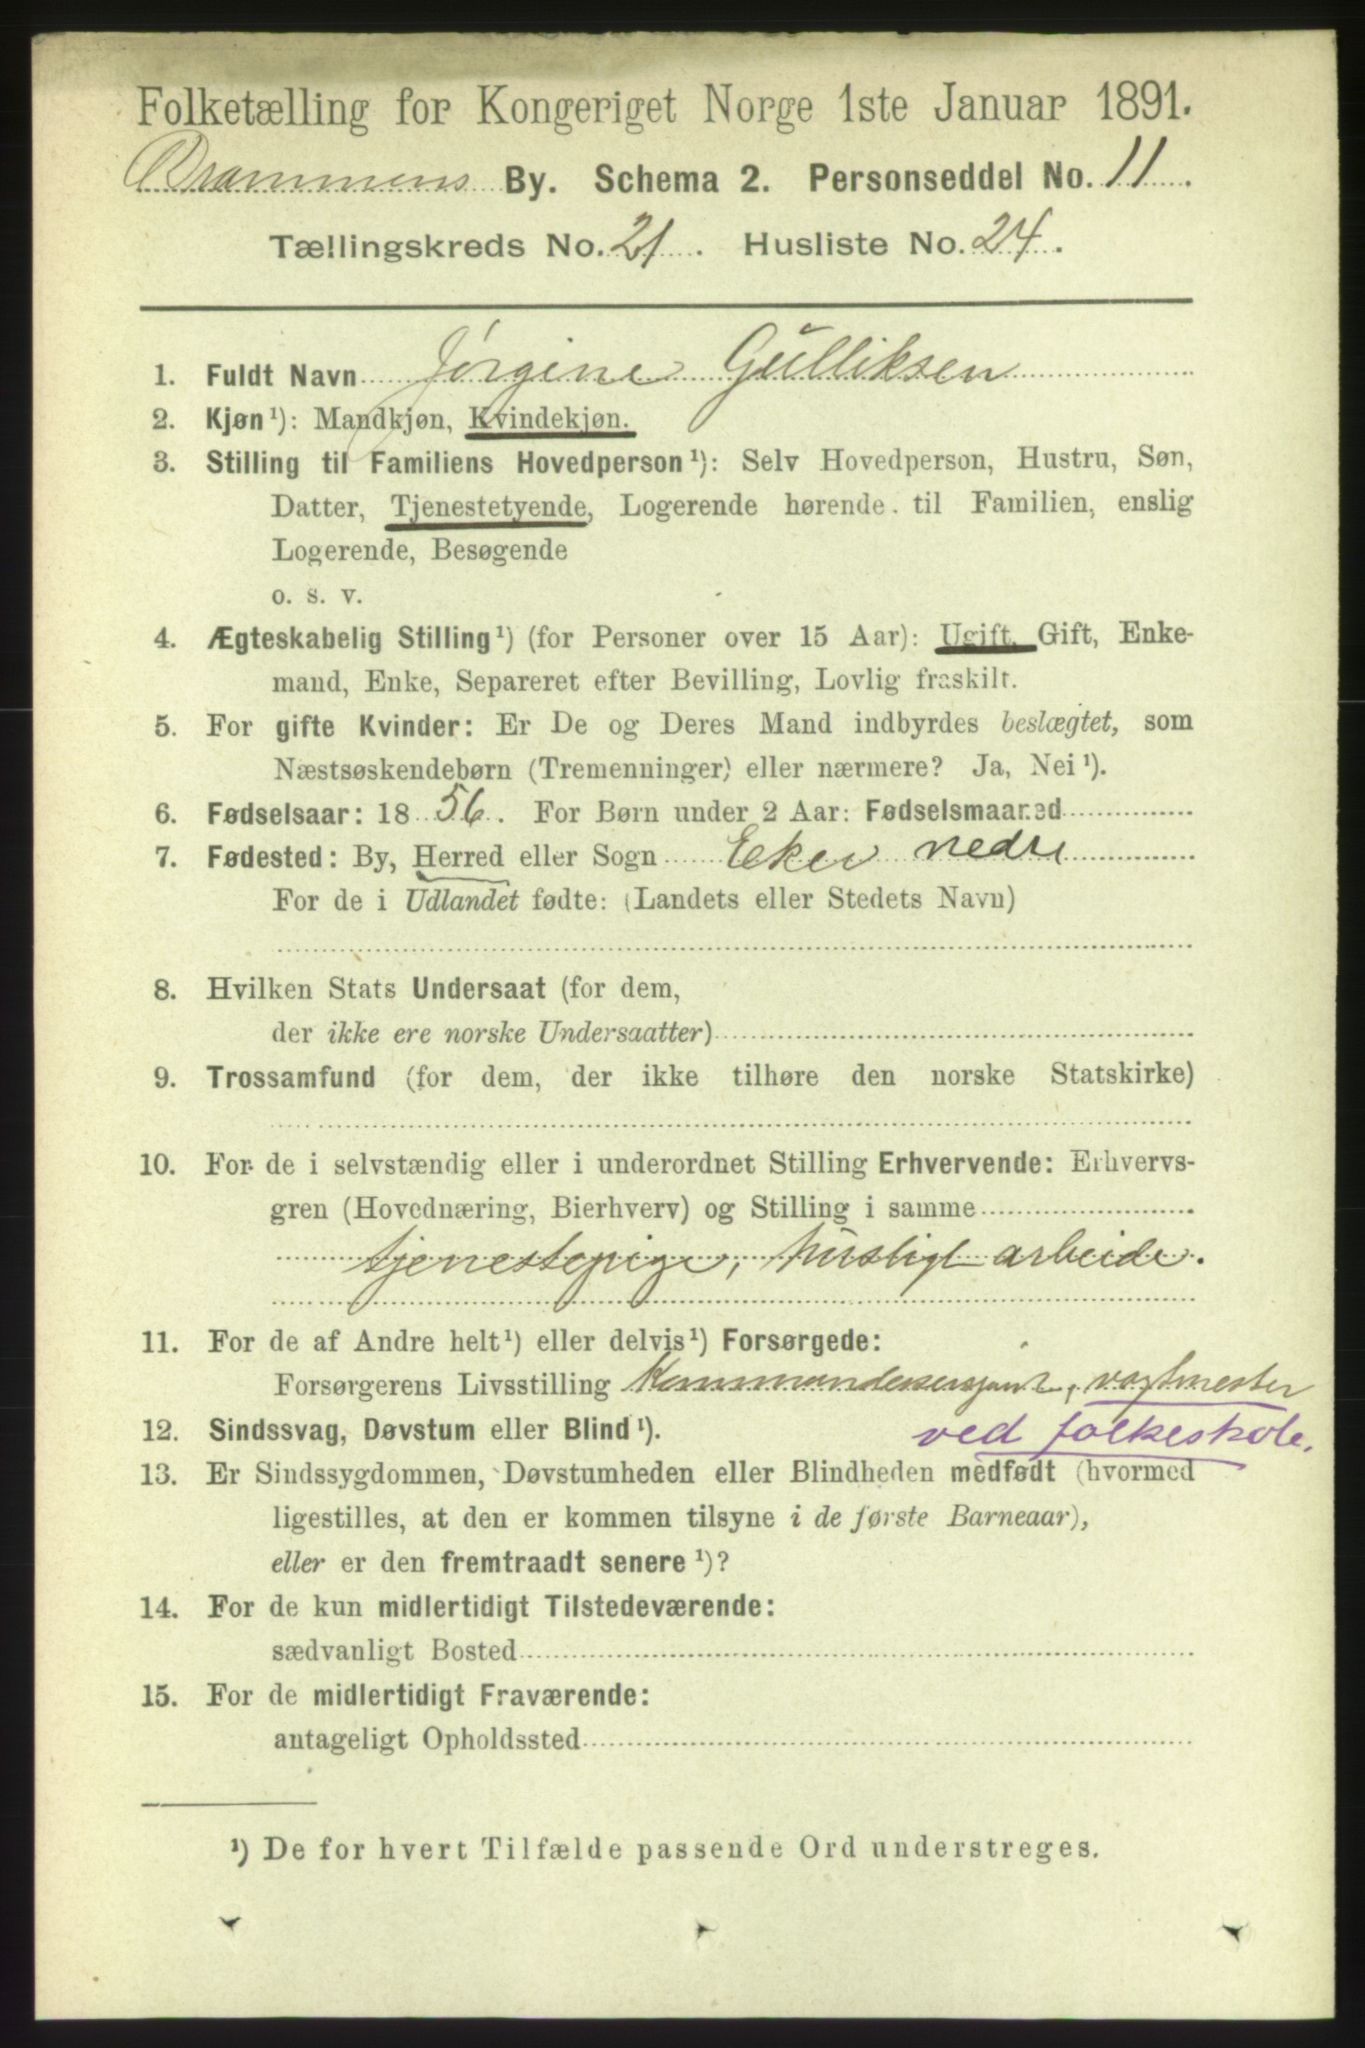 Folketælling for Kongeriget Norge 1ste Januar 1891.
Drammens By. Schema 2. Personseddel No. 11.
Tællingskreds No. 21. Husliste No. 24.
1. Fuldt Navn Jørgine Gulliksen
2. Kjøn¹): Mandkjøn, Kvindekjøn.
3. Stilling til Familiens Hovedperson¹): Selv Hovedperson, Hustru, Søn,
Datter, Tjenestetyende, Logerende hørende til Familien, enslig
Logerende, Besøgende
o. s. v.
4. Ægteskabelig Stilling¹) (for Personer over 15 Aar): Ugift, Gift, Enke-
mand, Enke, Separeret efter Bevilling, Lovlig fraskilt.
5. For gifte Kvinder: Er De og Deres Mand indbyrdes beslægtet, som
Næstsøskendebørn (Tremenninger) eller nærmere? Ja, Nei¹).
6. Fødselsaar: 1856. For Børn under 2 Aar: Fødselsmaaned
7. Fødested: By, Herred eller Sogn Eker nedre
For de i Udlandet fødte: (Landets eller Stedets Navn)
8. Hvilken Stats Undersaat (for dem,
der ikke ere norske Undersaatter)
9. Trossamfund (for dem, der ikke tilhøre den norske Statskirke)
10. For de i selvstændig eller i underordnet Stilling Erhvervende: Erhvervs-
gren (Hovednæring, Bierhverv) og Stilling i samme
tjenestepige, husligt arbeide.
11. For de af Andre helt¹) eller delvis¹) Forsørgede:
Forsørgerens Livsstilling Kommandersersjant, vagtmester
12. Sindssvag, Døvstum eller Blind¹). ved folkeskole.
13. Er Sindssygdommen, Døvstumheden eller Blindheden medfødt (hvormed
ligestilles, at den er kommen tilsyne i de første Barneaar),
eller er den fremtraadt senere¹)?
14. For de kun midlertidigt Tilstedeværende:
sædvanligt Bosted
15. For de midlertidigt Fraværende:
antageligt Opholdssted
¹) De for hvert Tilfælde passende Ord understreges.